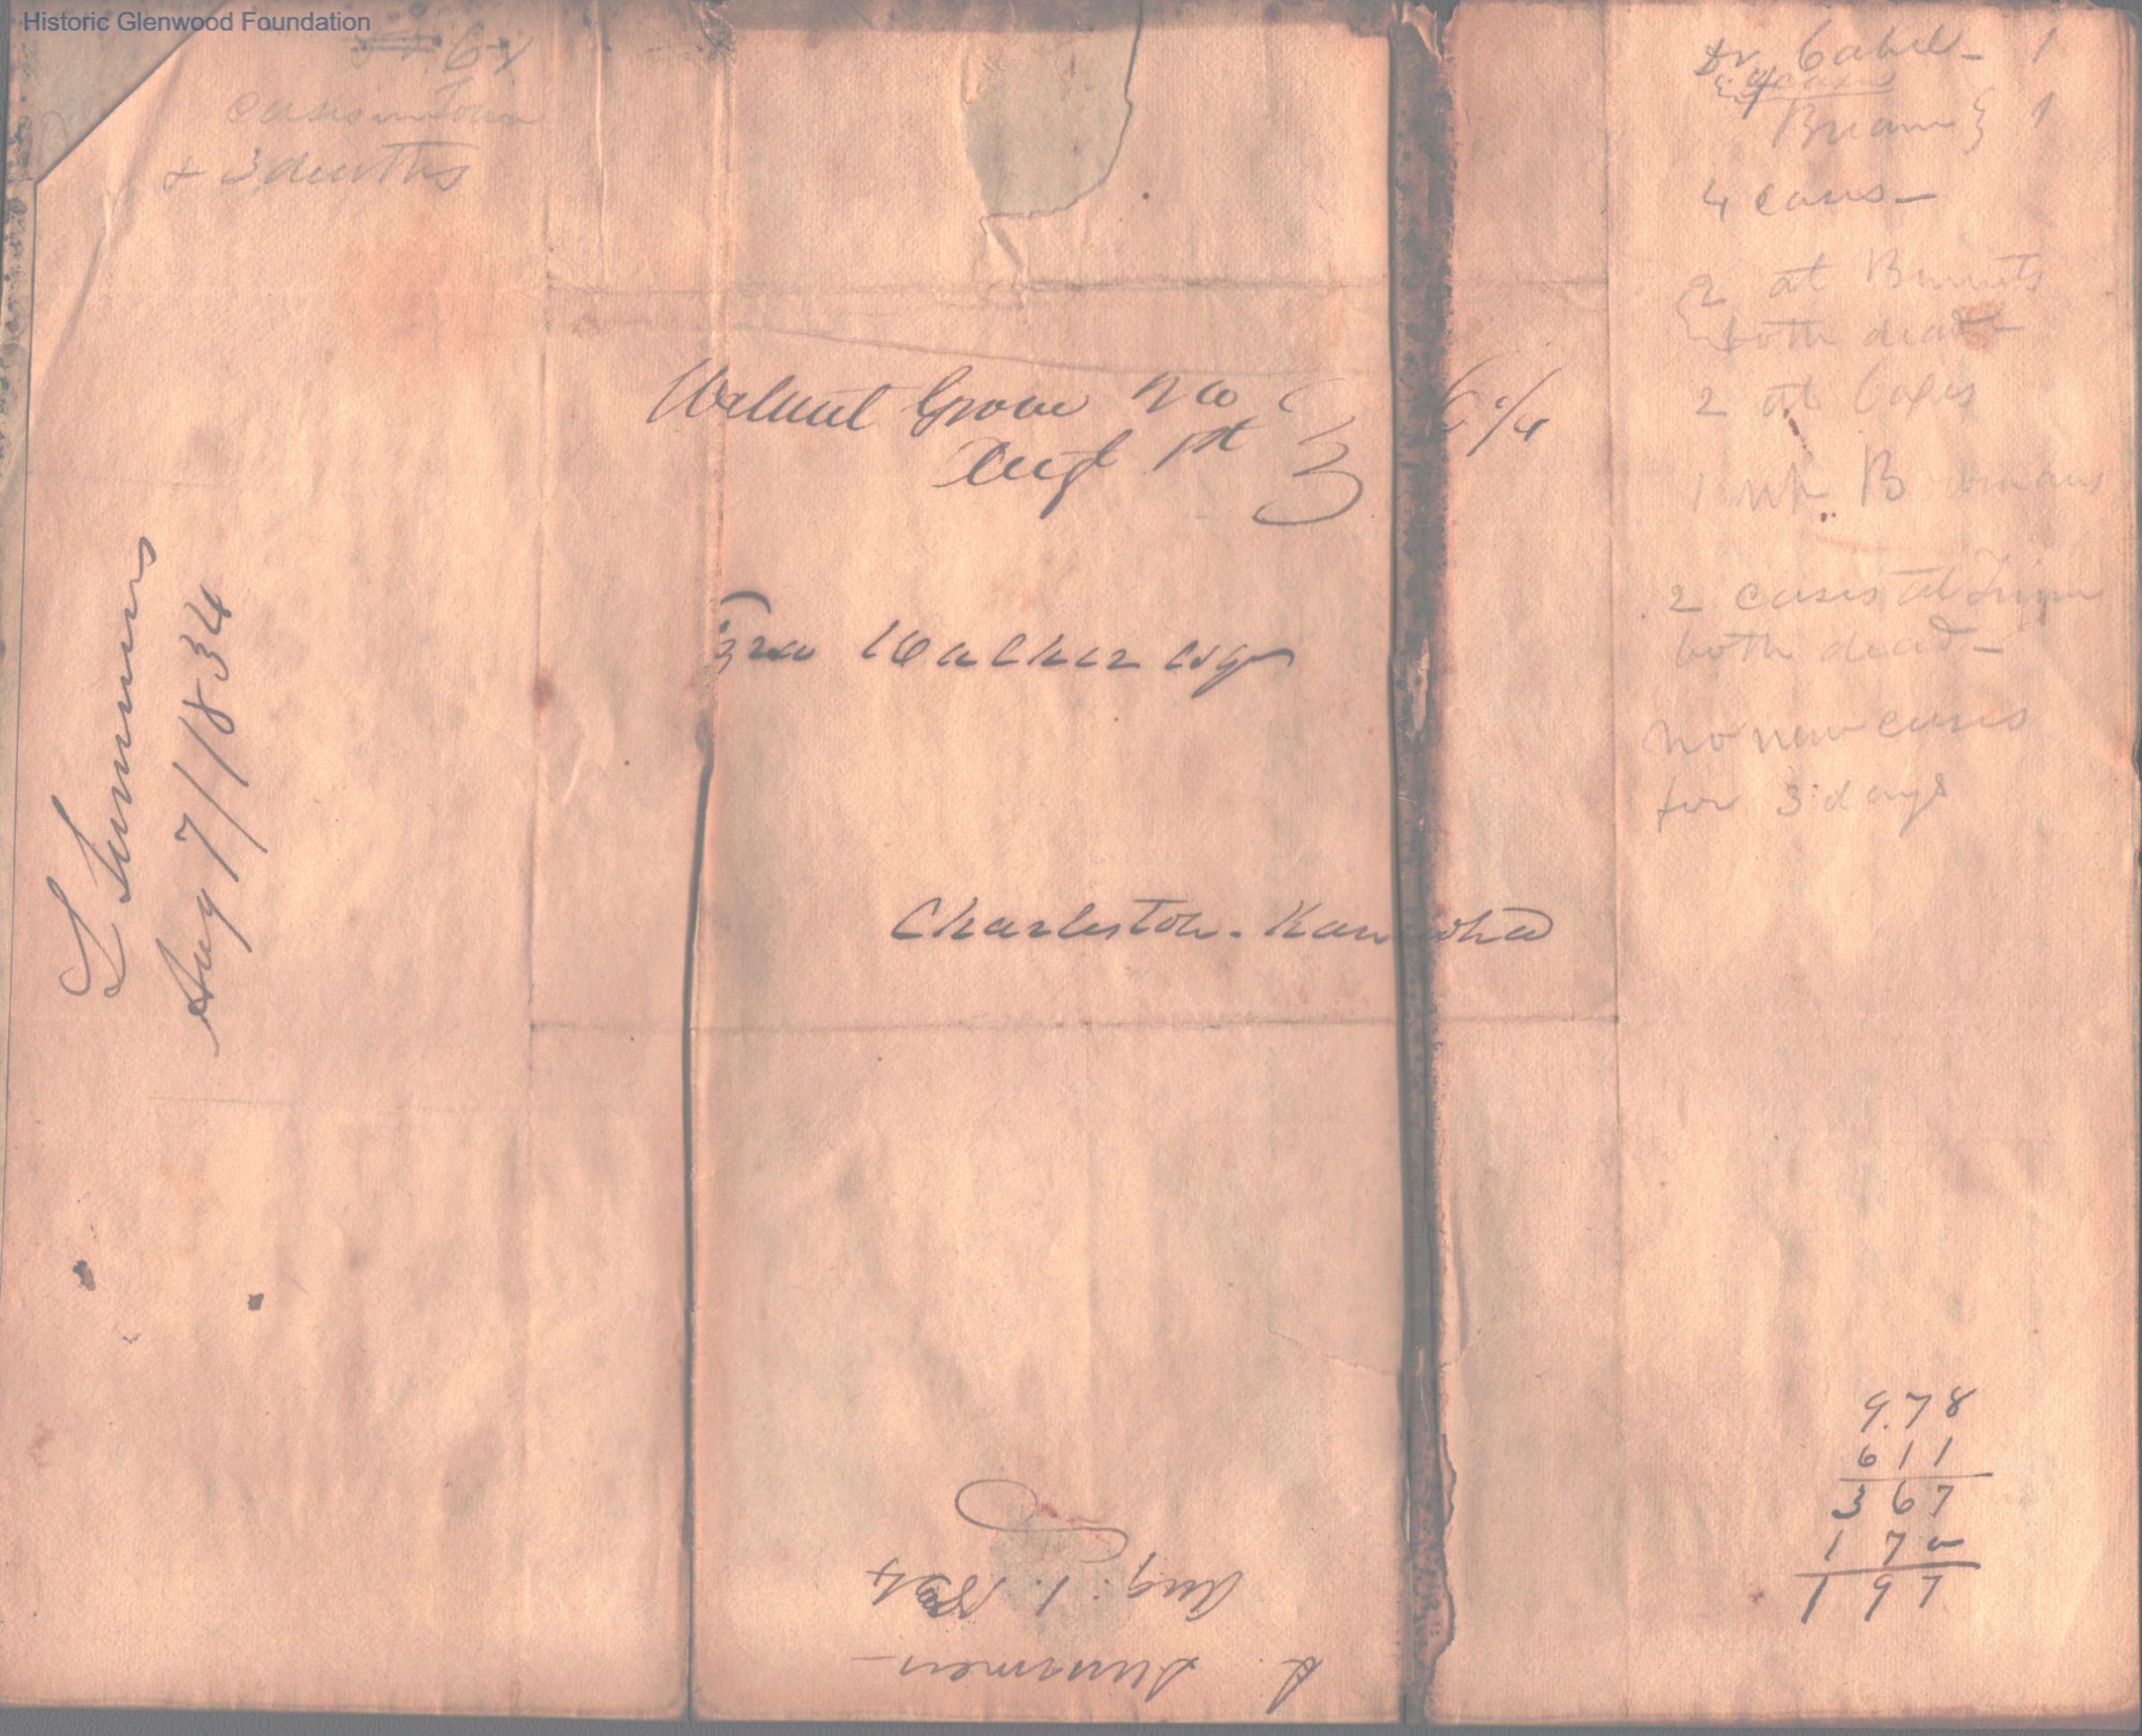 Historic Glenwood Foundation
cases in Town
& 3 deaths
L Summers
Aug 7/1834
Walnut Grove
Augt 1st 3
6 1/4
Walker esqr
Charleston. Kanawha
Aug: 1. 1834
L. Summers
Dr Cabell - 1
4 cases
} 1
4 cases -
2 at
both dead -
2 at
1
2 cases at
both dead -
no new cases
for 3 days
9.78
611
367
170
197